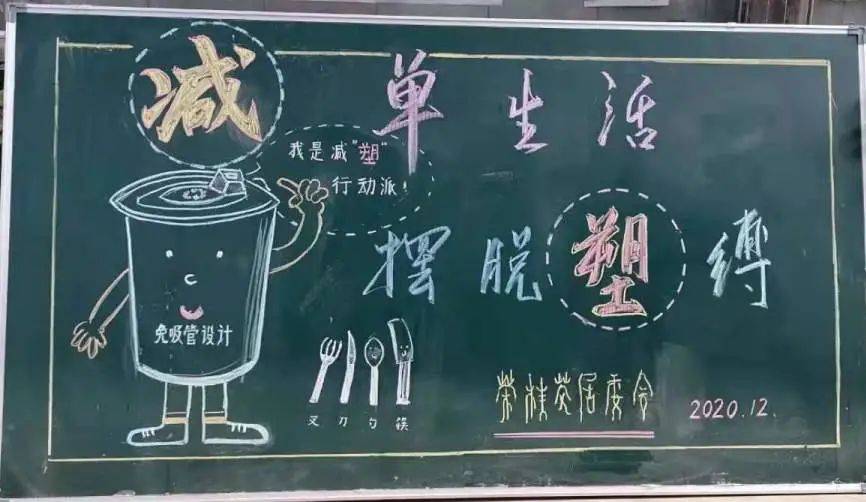 减单生活
我是减"塑"
行动派!
摆脱塑缚
免吸管设计
叉刀勺筷
荣桂苑居委会
2020.12.